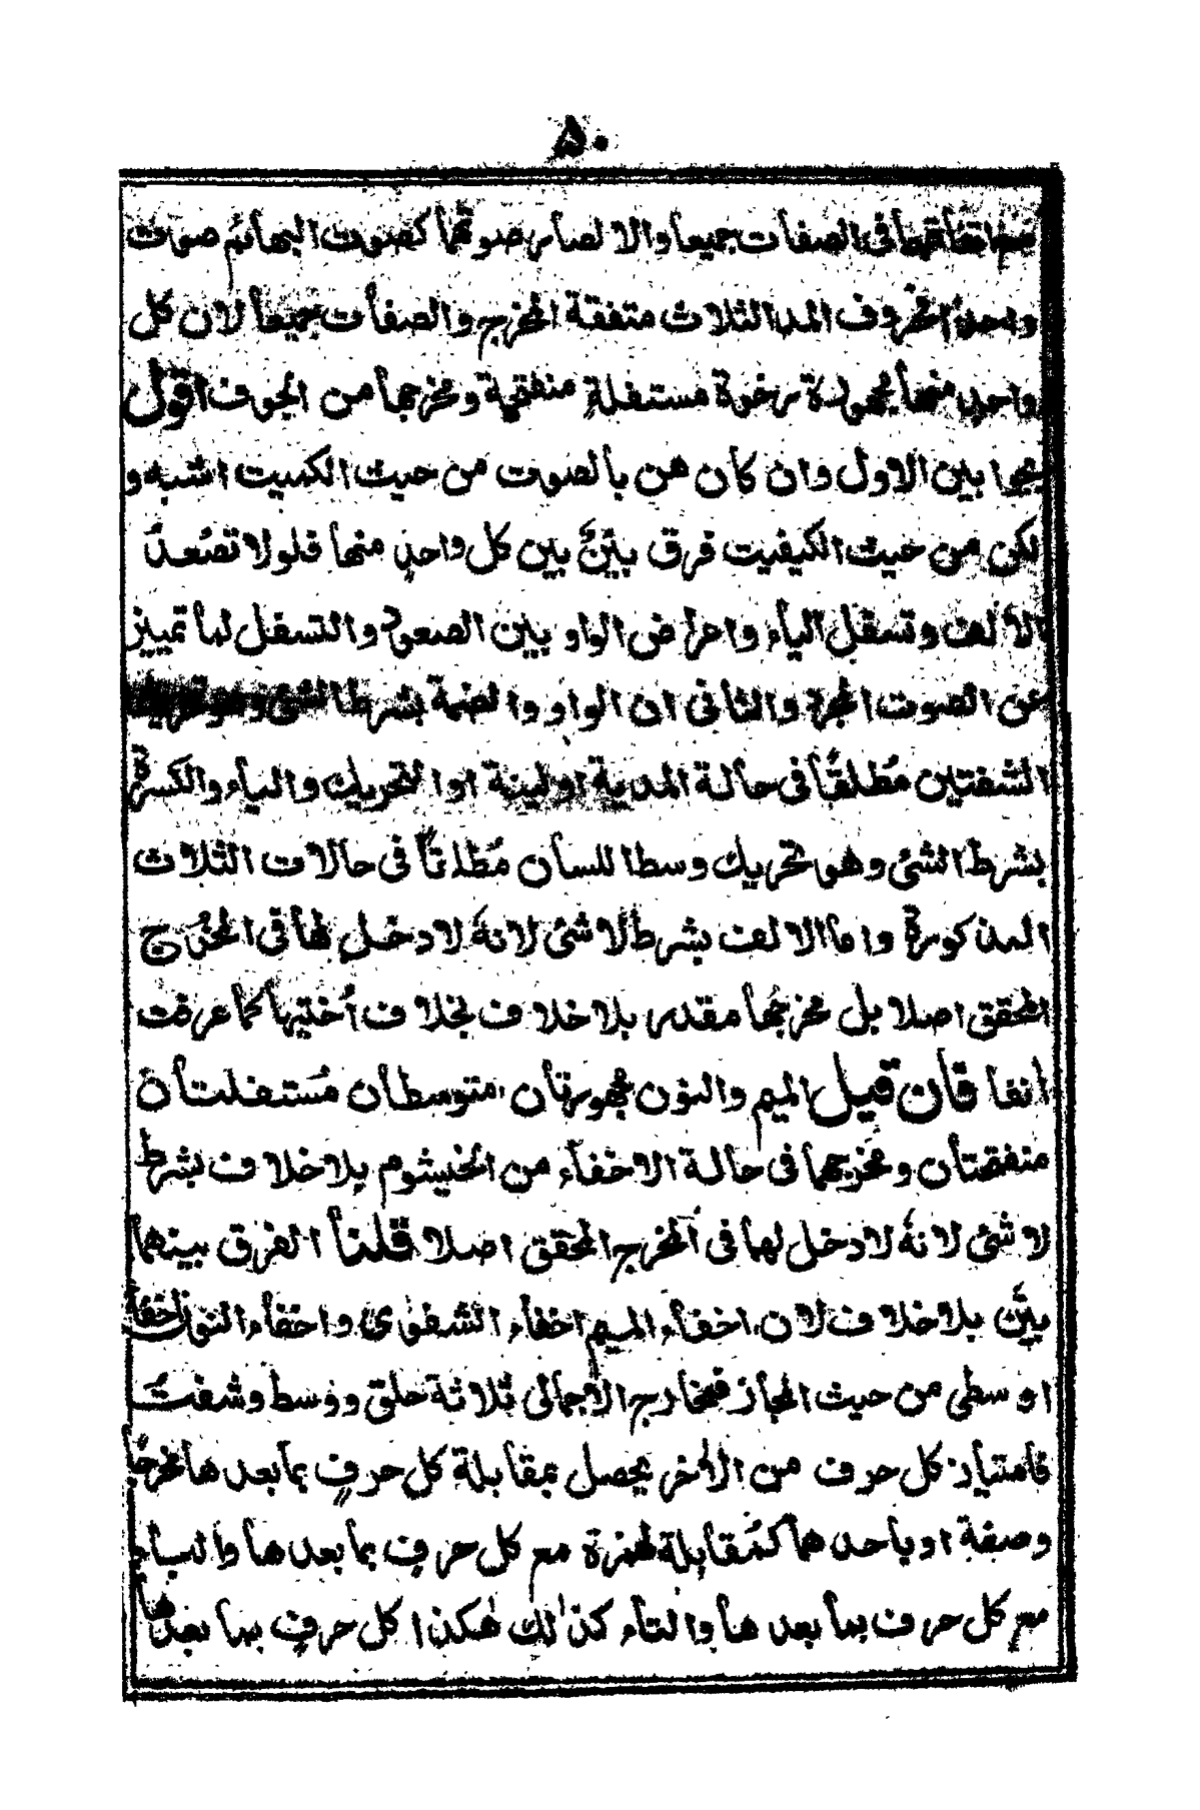 ۵۰
مع اتفاقهما فى الصفات جميعا والا لصار صوتهما كصوت البهائم صوت
واحدا كحروف المد الثلاث متفقة المخرج والصفات جميعا لان كل
واحد منها مجهورة رخوة مستفلة منفتحة ومخرجها من الجوف اقول
بين الاول وان كان هن بالصوت من حيث الكميت اشبه و
لكن من حيث الكيفيت فرق بيّنٌ بين كل واحد منها فلولا تصعد
الالف وتسفل الياء واعراض الواو بين الصعود والتسفل لما تميز
عن الصوت المجرد والثانى ان الواو والضمة بشرط الشئ وهو تحريك
الشفتين مُطلقًا فى حالة المدية او لينة او التحريك والياء والكسرة
بشرط الشئ وهو تحريك وسط اللسان مُطلقًا فى حالات الثلاث
المذكورة واما الالف بشرط لا شئ لانهٗ لا دخل لها فى المخرج
المحقق اصلا بل مخرجها مقدر بلا خلاف بخلاف أختيها كما عرفت
انفا فان قيل الميم والنون مجهورتان متوسطتان مُستفلتان
منفتحتان ومخرجهما فى حالة الاخفاء من الخيشوم بلا خلاف بشرط
لا شئ لانهٗ لا دخل لهما فى المخرج المحقق اصلا قلنا الفرق بينهما
بيّن بلا خلاف لان اخفاء الميم اخفاء الشفوى واخفاء النون اخفاء
او سطى من حيث المجاز فمخارج الاجمالى ثلاثة حلق ووسط وشفت
فامتياز كل حرف من الاخر يحصل بمقابلة كل حرف بما بعدها مخرجا
وصفة او باحدهما كمُقابلة همزة مع كل حرف بما بعدها والباء
مع كل حرف بما بعدها والتاء كذٰلك هٰكذا كل حرف بما بعدها